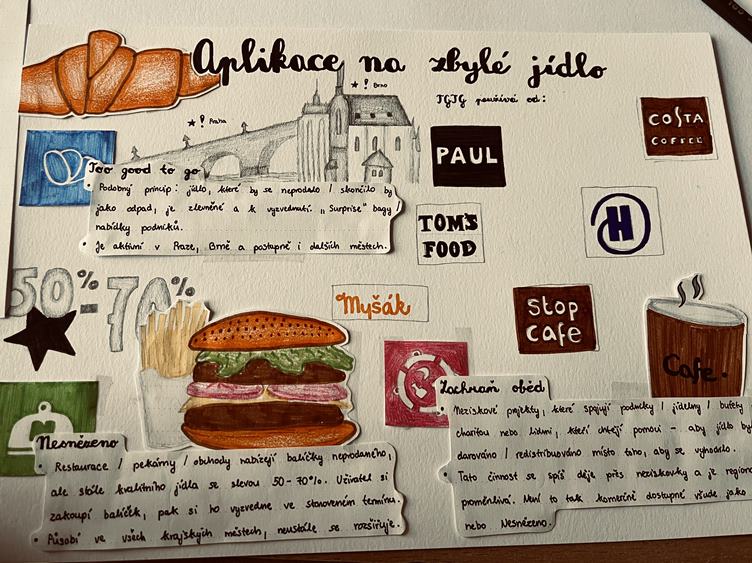 Aplikace na zbylé jídlo
Praha
Brno
TGTG používá od:
PAUL
COSTA
COFFEE
TOM'S
FOOD
H
Myšák
stop
cafe
Too good to go
Podobný princip: jídlo, které by se neprodalo / skončilo by
jako odpad, je zlevněné a k vyzvednutí. „Surprise" bagy /
nabídky podniků.
Je aktivní v Praze, Brně a postupně i dalších městech.
50%-70%
Cafe.
Nesnězeno
Restaurace / pekárny / obchody nabízejí balíčky neprodaného,
ale stále kvalitního jídla se slevou 50-70%. Uživatel si
zakoupí balíček, pak si ho vyzvedne ve stanoveném termínu.
Působí ve všech krajských městech, neustále se rozšiřuje.
Zachraň oběd
Neziskové projekty, které spojují podniky / jídelny / bufety
charitou nebo lidmi, kteří chtějí pomoci - aby jídlo by
darováno / redistribuováno místo toho, aby se vyhodilo.
Tato činnost se spíš děje přes neziskovky a je region
proměnlivá. Není to tak komerčně dostupné všude jako
nebo Nesnězeno.